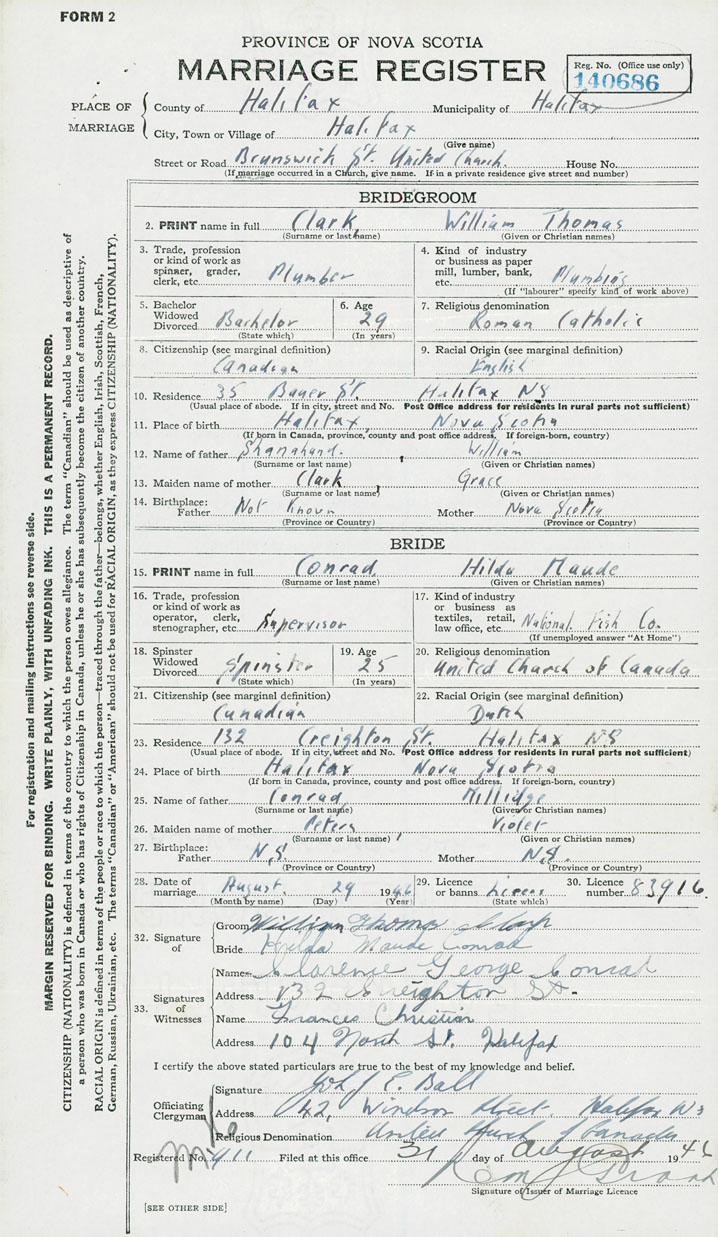 FORM 2
PROVINCE OF NOVA SCOTIA
MARRIAGE REGISTER
Reg. No. (Office use only)
140686
PLACE OF MARRIAGE
County of Halifax Municipality of Halifax
City, Town or Village of Halifax
(Give name)
Street or Road Brunswick St. United Church. House No.
(If marriage occurred in a Church, give name. If in a private residence give street and number)
BRIDEGROOM
2. PRINT name in full Clark, William Thomas
(Surname or last name) (Given or Christian names)
3. Trade, profession or kind of work as spinner, grader, clerk, etc. Plumber
4. Kind of industry or business as paper mill, lumber, bank, etc. Plumbing
(If "labourer" specify kind of work above)
5. Bachelor Widowed Divorced Bachelor
(State which)
6. Age 29
(In years)
7. Religious denomination
Roman Catholic
8. Citizenship (see marginal definition)
Canadian
9. Racial Origin (see marginal definition)
English
10. Residence 35 Bauer St. Halifax NS
(Usual place of abode. If in city, street and No. Post Office address for residents in rural parts not sufficient)
11. Place of birth Halifax, Nova Scotia
(If born in Canada, province, county and post office address. If foreign-born, country)
12. Name of father Shanahand. William
(Surname or last name) (Given or Christian names)
13. Maiden name of mother Clark, Grace
(Surname or last name) (Given or Christian names)
14. Birthplace: Father Not Known Mother Nova Scotia
(Province or Country) (Province or Country)
BRIDE
15. PRINT name in full Conrad, Hilda Maude
(Surname or last name) (Given or Christian names)
16. Trade, profession or kind of work as operator, clerk, stenographer, etc. Supervisor
17. Kind of industry or business as textiles, retail, law office, etc. National Fish Co.
(If unemployed answer "At Home")
18. Spinster Widowed Divorced Spinster
(State which)
19. Age 25
(In years)
20. Religious denomination
United Church of Canada
21. Citizenship (see marginal definition)
Canadian
22. Racial Origin (see marginal definition)
Dutch
23. Residence 132 Creighton St. Halifax NS
(Usual place of abode. If in city, street and No. Post Office address for residents in rural parts not sufficient)
24. Place of birth Halifax Nova Scotia
(If born in Canada, province, county and post office address. If foreign-born, country)
25. Name of father Conrad, Millidge
(Surname or last name) (Given or Christian names)
26. Maiden name of mother Peters, Violet
(Surname or last name) (Given or Christian names)
27. Birthplace: Father N.S. Mother N.S.
(Province or Country) (Province or Country)
28. Date of marriage August 29 1946
(Month by name) (Day) (Year)
29. Licence or banns
(State which)
30. Licence number 83916.
32. Signature of
Groom William Thomas Clark
Bride Hilda Maude Conrad
33. Signatures of Witnesses
Name Clarence George Conrad
Address 132 Creighton St.
Name Frances Christian
Address 104 North St. Halifax
I certify the above stated particulars are true to the best of my knowledge and belief.
Officiating Clergyman
Signature Ball
Address 42, Windsor Street Halifax NS
Religious Denomination United Church of Canada
Registered No. 411 Filed at this office 31 day of August 1946
Grant
Signature of Issuer of Marriage Licence
[SEE OTHER SIDE]
For registration and mailing instructions see reverse side.
MARGIN RESERVED FOR BINDING. WRITE PLAINLY, WITH UNFADING INK. THIS IS A PERMANENT RECORD.
CITIZENSHIP (NATIONALITY) is defined in terms of the country to which the person owes allegiance. The term "Canadian" should be used as descriptive of
a person who was born in Canada or who has rights of Citizenship in Canada, unless he or she has subsequently become the citizen of another country.
RACIAL ORIGIN is defined in terms of the people or race to which the person—traced through the father—belongs, whether English, Irish, Scottish, French,
German, Russian, Ukrainian, etc. The terms "Canadian" or "American" should not be used for RACIAL ORIGIN, as they express CITIZENSHIP (NATIONALITY).